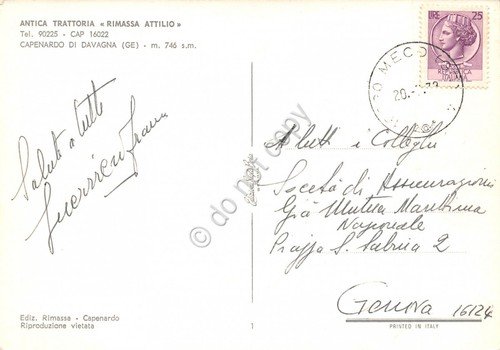 ANTICA TRATTORIA « RIMASSA ATTILIO »
Tel. 90225 - CAP 16022
CAPENARDO DI DAVAGNA (GE) - m. 746 s.m.
LIRE 25
20.
Saluti a tutti
A tutti i Colleghi
Società di Assicurazioni
Già Mutua Marittima
Nazionale
Piazza S. Sabina 2
Genova 16124
do not copy
Ediz. Rimassa - Capenardo
Riproduzione vietata
1
PRINTED IN ITALY